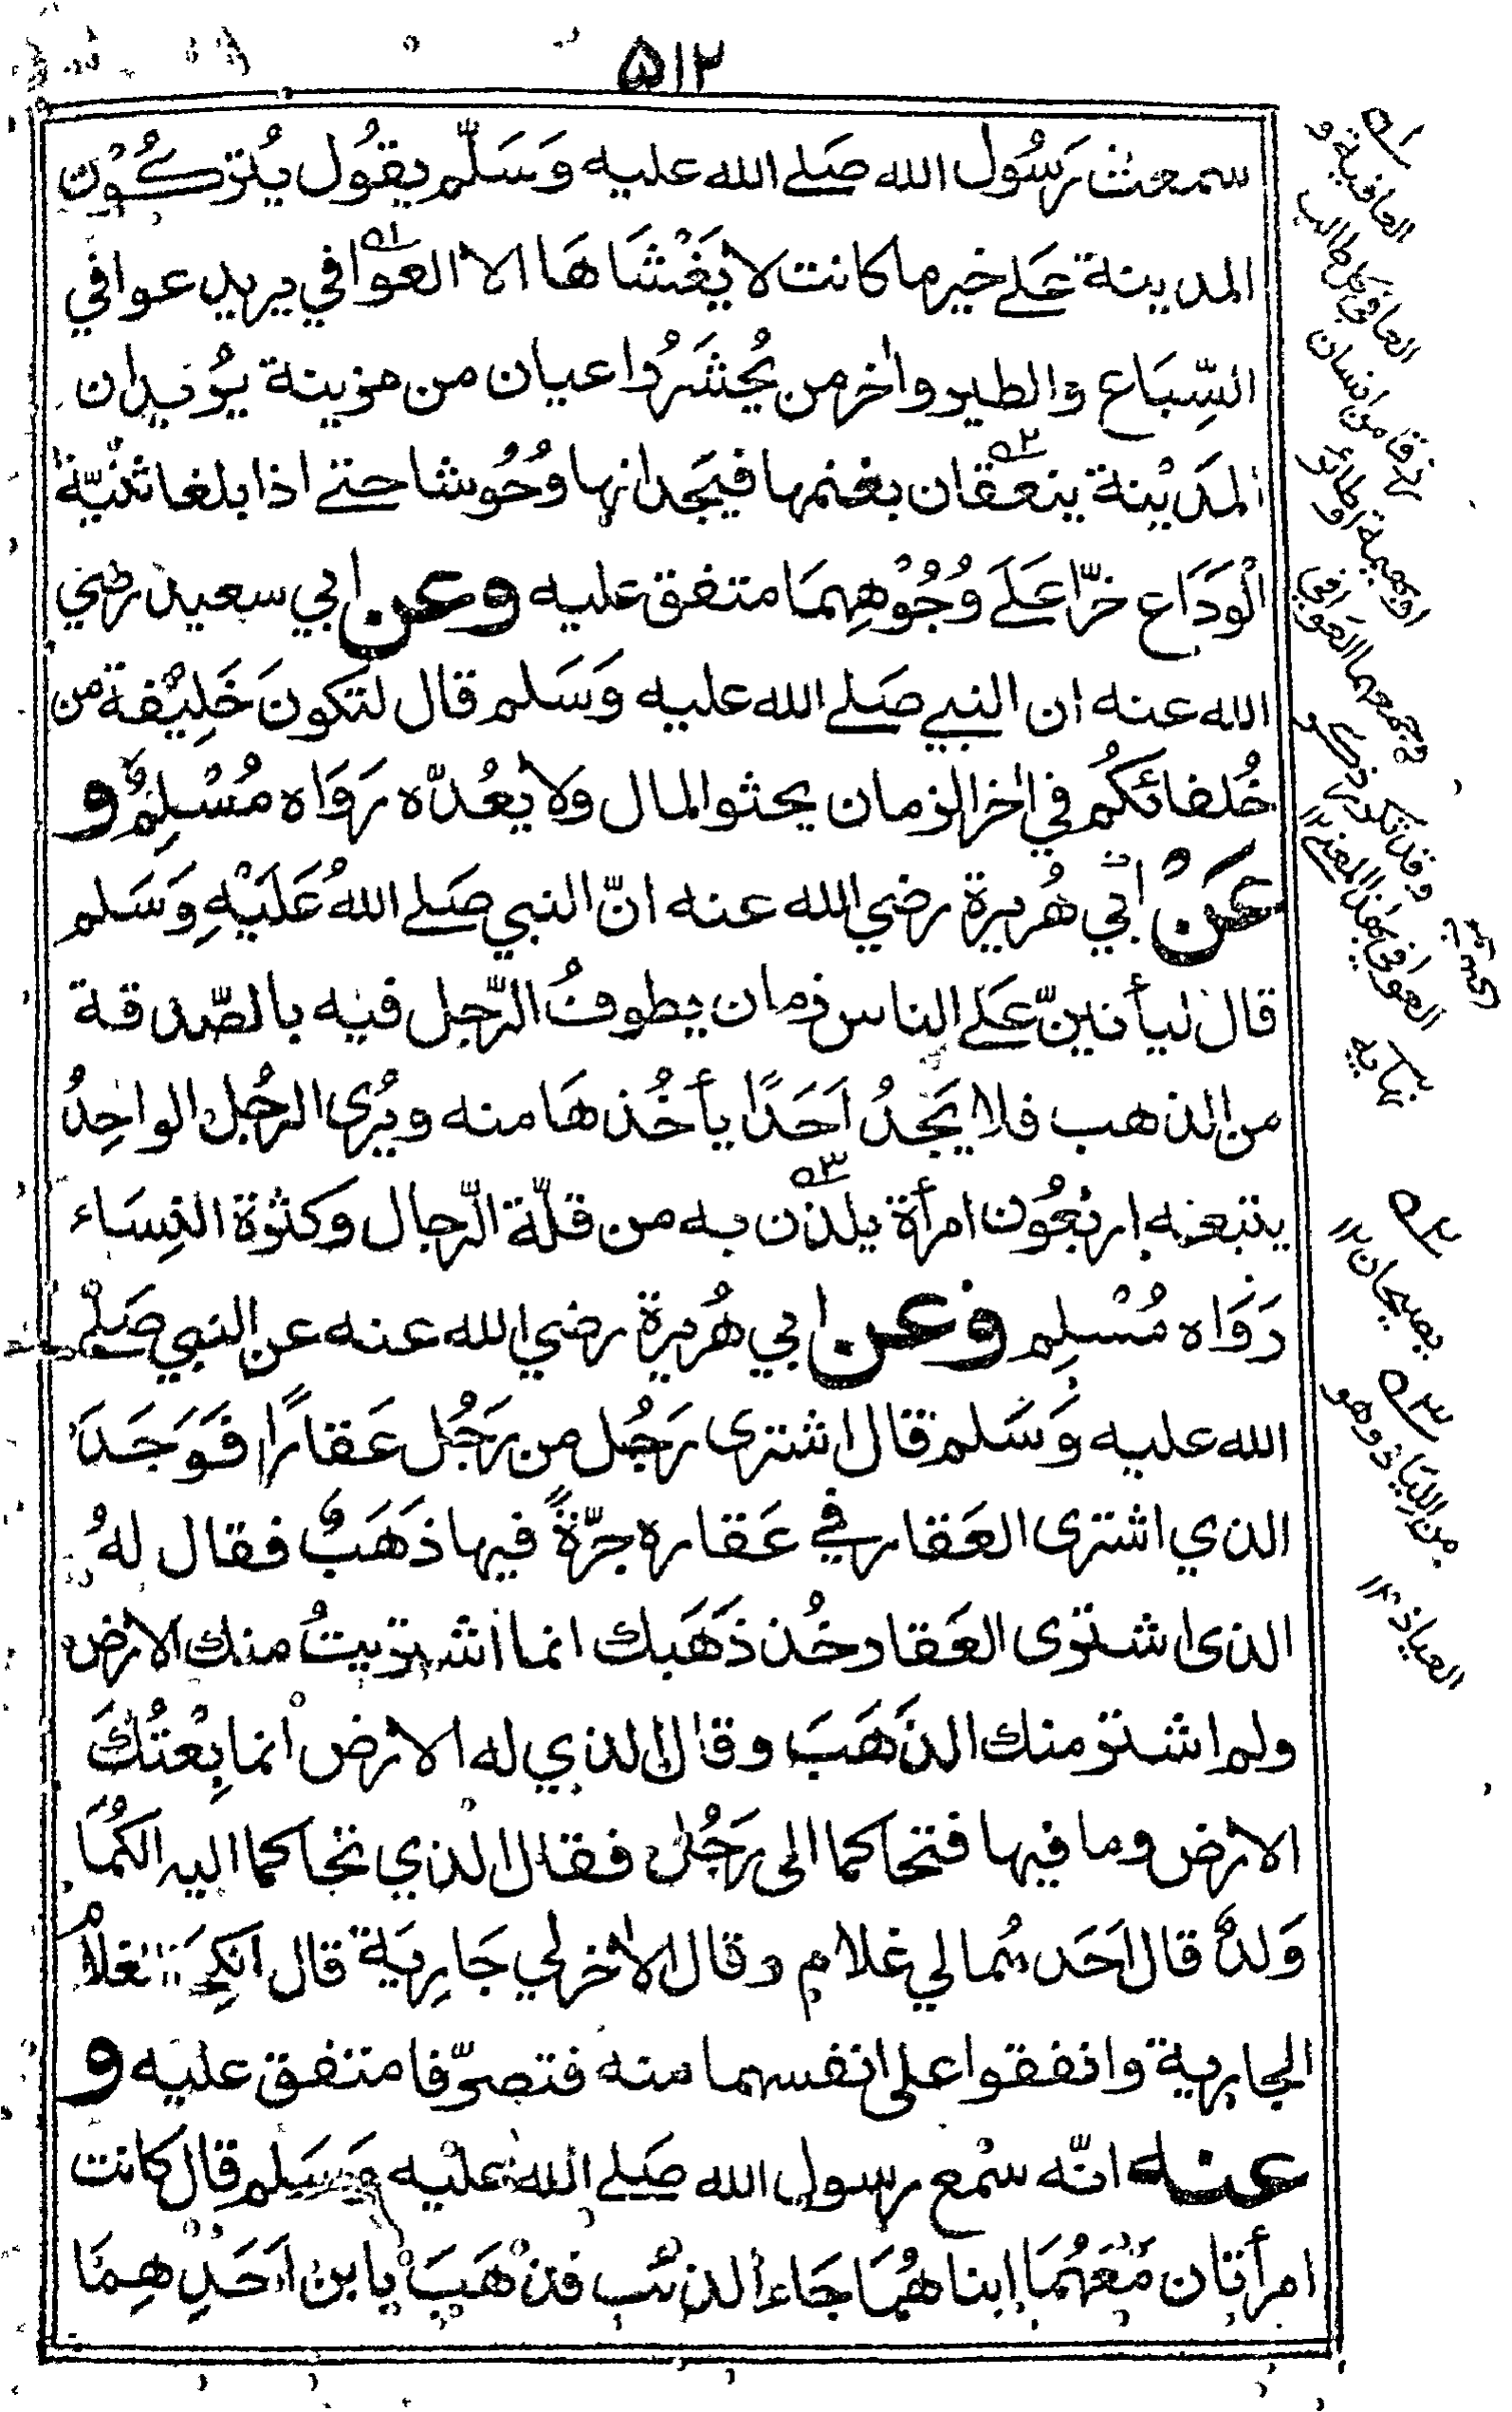 ۵۱۲
سمعت رَسُول الله صَلے الله عليه وَسَلّم يقُول يُترَكُوْن
المدينة عَلے خير ما كانت لا يَغْشَاهَا الا العوافي يريد عوافي
السِّبَاع والطير واٰخر من يُحْشَرُ داعيان من مزينة يُريدان
المَدِيْنة ينعقان بغنمها فيَجدانها وُحُوشا حتے اذا بلغا ثنيّة
الْوَدَاع خرّا عَلَے وُجُوْهِهِمَا متفق عليه وعن ابي سعيد رضي
الله عنه ان النبي صَلے الله عليه وَسَلم قال لتَكونَ خَلِيْفة من
خُلفائكُم في اٰخر الزمان يحثو المال ولا يعُدّه رَوَاه مُسْلِمٌ و
عَنْ ابي هُريرة رضي الله عنه انّ النبي صَلے اللهُ عَلَيْهِ وَسَلم
قال ليأتينّ عَلے الناس زمان يطوفُ الرّجل فيه بالصّدقة
من الذهب فلا يَجدُ اَحَدًا يأخُذهَا منه ويُرى الرجُل الواحِدُ
يتبعه اربَعُون امرأة يلذن به من قلّة الرّجال وكثرة النِسَاء
رَوَاه مُسْلِم وعن ابي هُريرة رضي الله عنه عن النبي صَلے
الله عليه وَسَلم قال اشترى رَجُل من رَجُل عَقارًا فَوَجَدَ
الذي اشترى العَقار في عَقاره جرّةً فيها ذَهَبٌ فقال لهُ
الذى اشترى العَقار خُذ ذَهَبك انما اشتريتُ منك الارض
ولم اشتر منك الذَهَبَ وقال الذي له الارض انما بِعْتُكَ
الارض وما فيها فتحاكما الى رَجُل فقال الذي تحاكما اليه الكُمَا
وَلدٌ قال اَحَدهُما لي غلام وقال الاٰخر لي جَارِيَة قال اَنكِحَا الغلامَ
الجارية وانفقوا على انفسهما منه فتصدّقا متفق عليه و
عنه انّه سَمع رسول الله صَلے الله عليه وَسَلم قال كانت
امرأتان مَعَهُمَا ابناهُمَا جَاء الذئب فذهَبَ بابن اَحَدِهِمَا
۱ه العافية و
العافي كل طالب
رزقا من انسان
او بهيمة او طائر
و جمعها العوافي
وقد تكرر ذكر
العوافي بهذا المعنى ۱۲
نهايه
۲ه
يصيحان ۱۲
۳ه
من اللياذ وهو
العياذ ۱۲